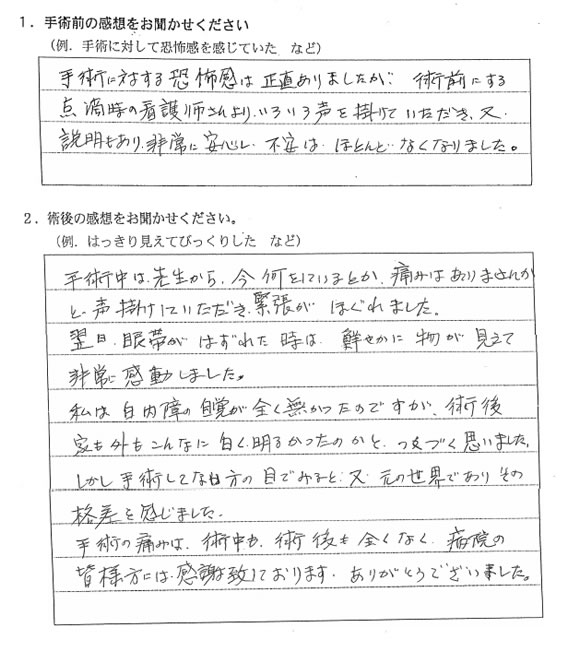 1．手術前の感想をお聞かせください
（例．手術に対して恐怖感を感じていた　など）
手術に対する恐怖感は正直ありましたが、術前にする
点滴時の看護師さんより、いろいろ声を掛けていただき、又、
説明もあり、非常に安心し、不安は、ほとんど、なくなりました。
2．術後の感想をお聞かせください。
（例．はっきり見えてびっくりした　など）
手術中は、先生から、今何をしているとか、痛みはありませんか
と、声掛けしていただき、緊張が ほぐれました。
翌日、眼帯が はずれた時は、鮮やかに物が見えて
非常に感動しました。
私は白内障の自覚が全く無かったのですが、術後
家も外もこんなに白く、明るかったのかと、つくづく思いました。
しかし手術してない方の目でみると、又、元の世界であり その
格差を感じました。
手術の痛みは、術中も、術後も全くなく、病院の
皆様方には、感謝致しております。ありがとうございました。